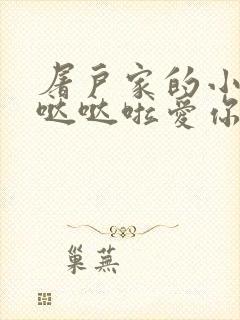 屠户家的小
哒哒啦爱你
巢芜